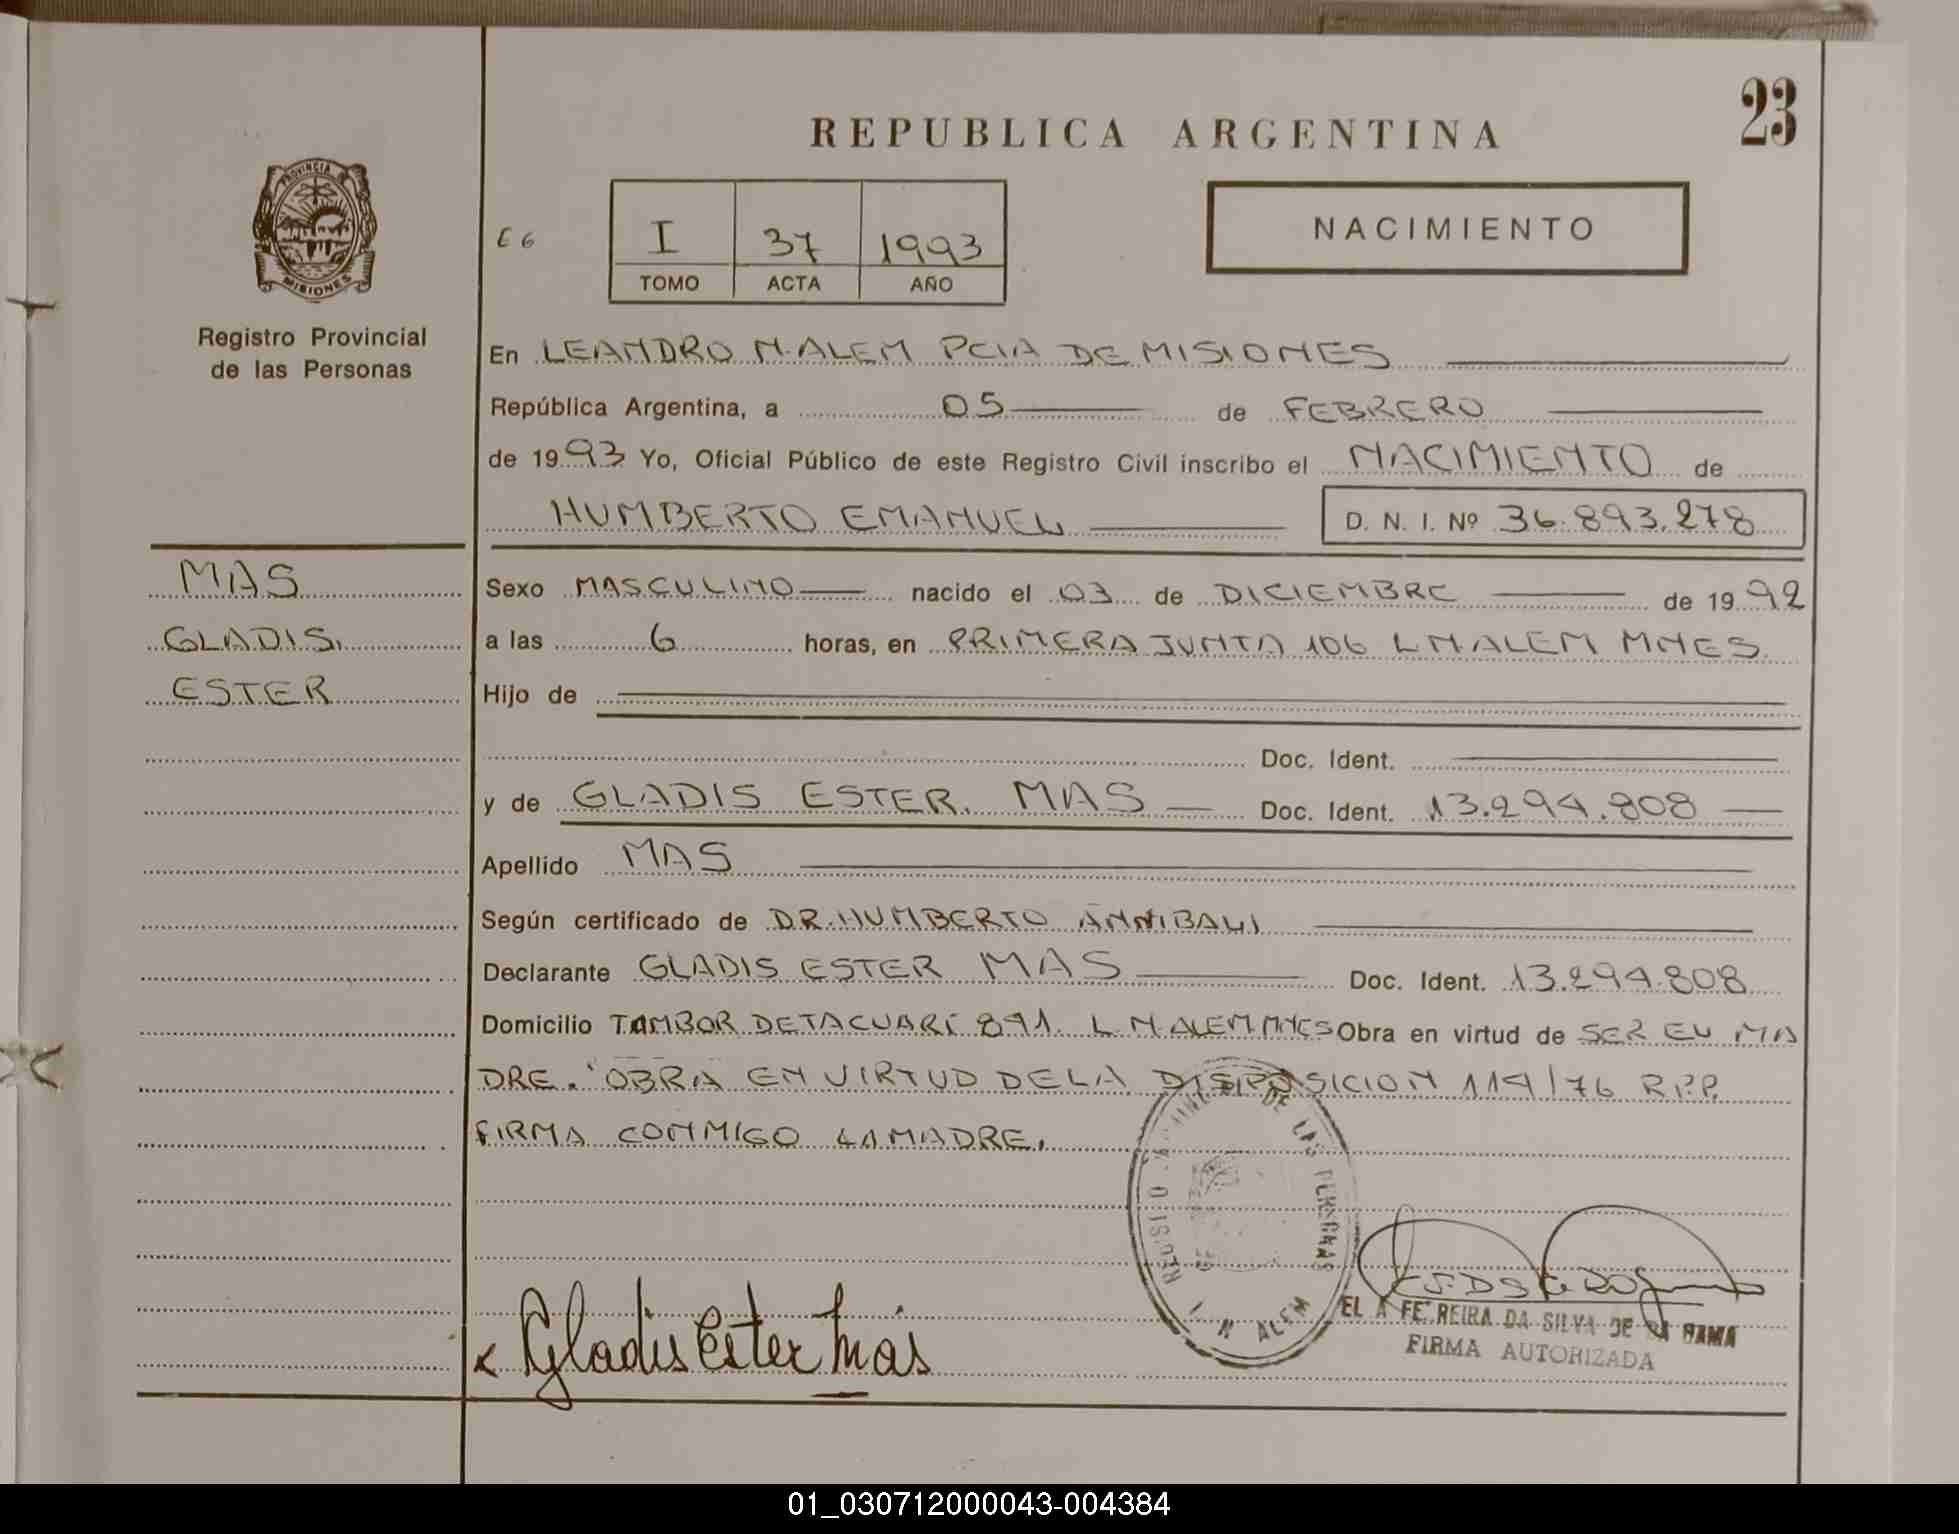 23
REPUBLICA ARGENTINA
PROVINCIA DE
MISIONES
Registro Provincial
de las Personas
E6
I 37 1993
TOMO ACTA AÑO
NACIMIENTO
En LEANDRO N. ALEM PCIA DE MISIONES
República Argentina, a 05 de FEBRERO
de 1993 Yo, Oficial Público de este Registro Civil inscribo el NACIMIENTO de
HUMBERTO EMANUEL D. N. I. Nº 36.893.278
MAS
GLADIS.
ESTER
Sexo MASCULINO nacido el 03 de DICIEMBRE de 1992
a las 6 horas, en PRIMERA JUNTA 106 L N ALEM MNES.
Hijo de
Doc. Ident.
y de GLADIS ESTER. MAS Doc. Ident. 13.294.808
Apellido MAS
Según certificado de DR. HUMBERTO ANNIBALI
Declarante GLADIS ESTER MAS Doc. Ident. 13.294.808
Domicilio TAMBOR DE TACUARI 891. L N ALEM MNES Obra en virtud de SER EL MA
DRE. OBRA EN VIRTUD DE LA DISPOSICION 114/76 R.P.P.
FIRMA CONMIGO LA MADRE.
DE LAS PERSONAS
ALEM
x Gladis Ester Mas
DA SILVA DE
FIRMA AUTORIZADA
01_030712000043-004384